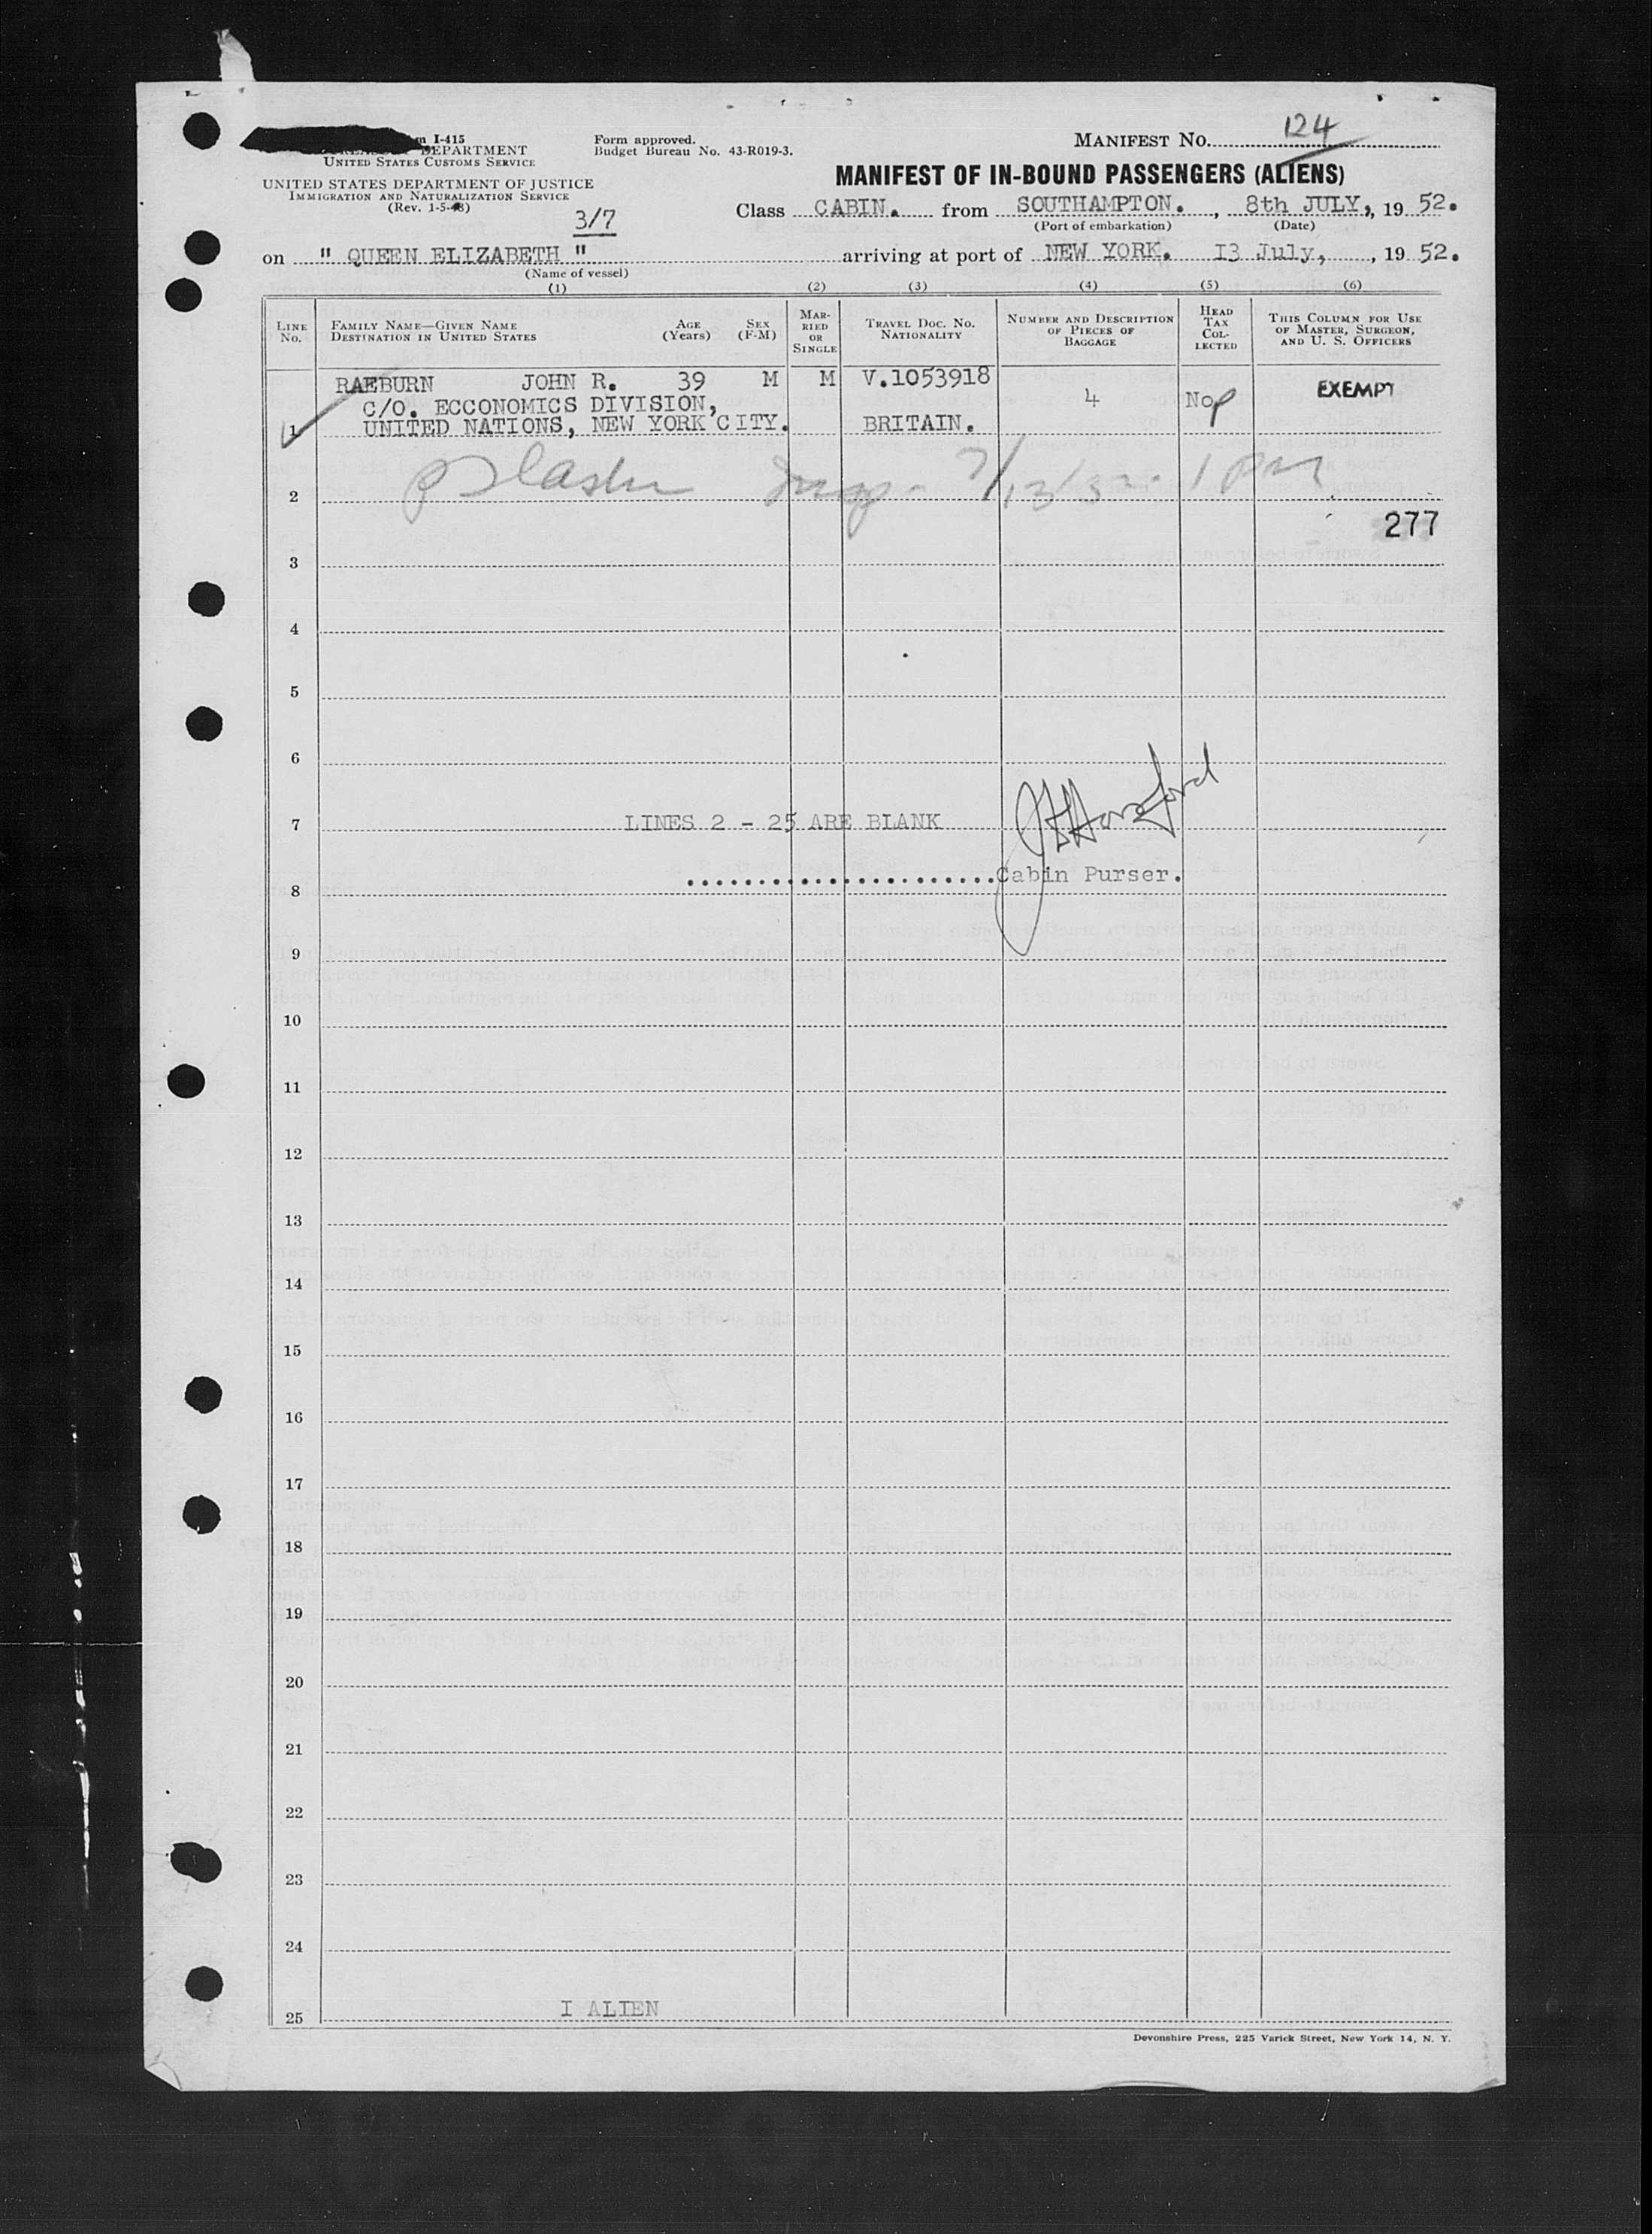 I-415
DEPARTMENT
UNITED STATES CUSTOMS SERVICE
Form approved.
Budget Bureau No. 43-R019-3.
MANIFEST No. 124
UNITED STATES DEPARTMENT OF JUSTICE
IMMIGRATION AND NATURALIZATION SERVICE
(Rev. 1-5-48)
MANIFEST OF IN-BOUND PASSENGERS (ALIENS)
3/7
Class CABIN. from SOUTHAMPTON. , 8th JULY, , 19 52.
(Port of embarkation) (Date)
on " QUEEN ELIZABETH " arriving at port of NEW YORK. I3 July, , 19 52.
(Name of vessel)
(1) (2) (3) (4) (5) (6)
LINE No. FAMILY NAME—GIVEN NAME DESTINATION IN UNITED STATES AGE (Years) SEX (F-M) MARRIED OR SINGLE TRAVEL DOC. NO. NATIONALITY NUMBER AND DESCRIPTION OF PIECES OF BAGGAGE HEAD TAX COLLECTED THIS COLUMN FOR USE OF MASTER, SURGEON, AND U. S. OFFICERS
RAEBURN JOHN R. 39 M M V.1053918 4 No EXEMPT
C/O. ECCONOMICS DIVISION,
1 UNITED NATIONS, NEW YORK CITY. BRITAIN.
2 7/13/52 - 1 PM
277
3
4
5
6
7 LINES 2 - 25 ARE BLANK
8 ......................Cabin Purser.
9
10
11
12
13
14
15
16
17
18
19
20
21
22
23
24
25 I ALIEN
Devonshire Press, 225 Varick Street, New York 14, N. Y.